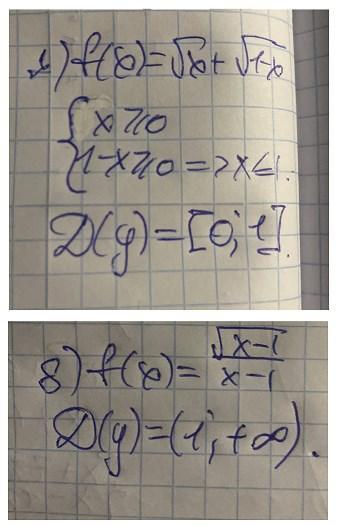 1) f(x)=√x+√1-x
{ x≥0
1-x≥0 => x≤1.
D(y)=[0;1].
8) f(x)= √x-1 / x-1
D(y)=(1;+∞).